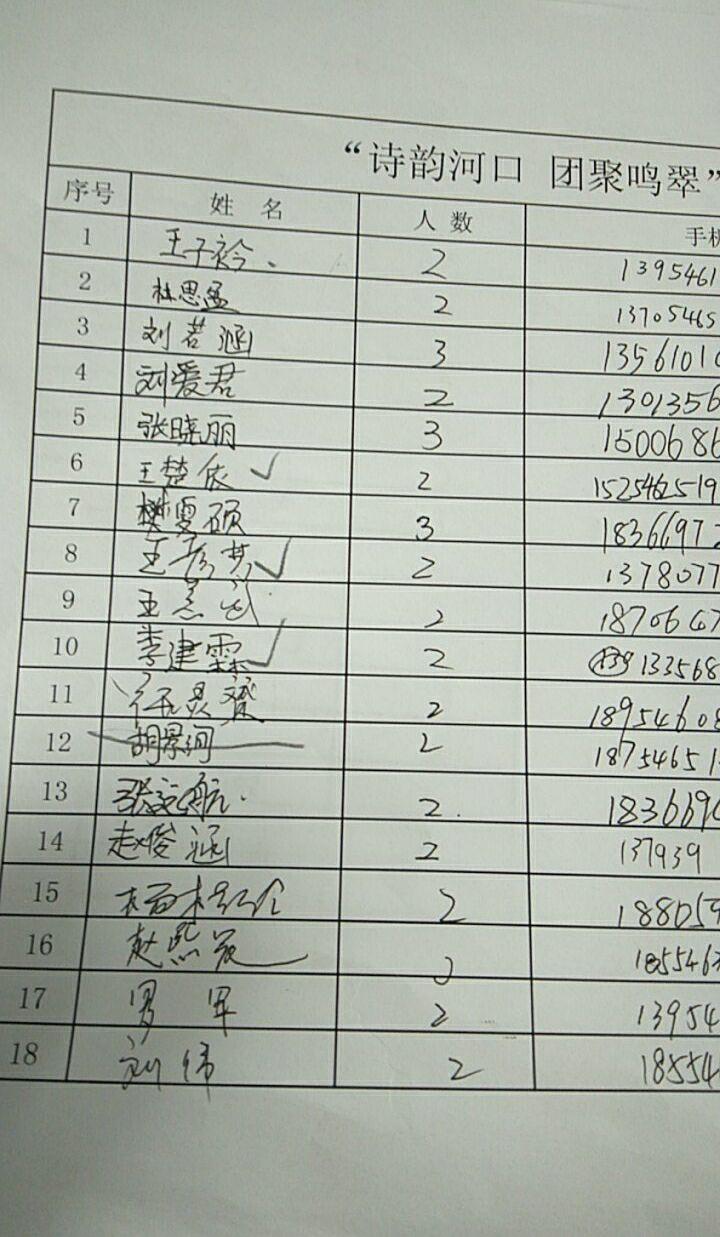 “诗韵河口 团聚鸣翠”
序号 姓 名 人 数 手机
1 王子衿 2 1395461
2 杜思孟 2 13705465
3 刘若涵 3 1356101
4 刘爱君 2 1301356
5 张晓丽 3 1500686
6 王楚依 2 1525462519
7 樊雯硕 3 1836697
8 王彦 2 1378077
9 王 2 1870667
10 李建霖 2 133568
11 2 1895460
12 胡景 2 18754651
13 张 航 2 183669
14 赵俊涵 2 137939
15 2 188059
16 赵熙 2 185546
17 军 2 13954
18 刘伟 2 18554